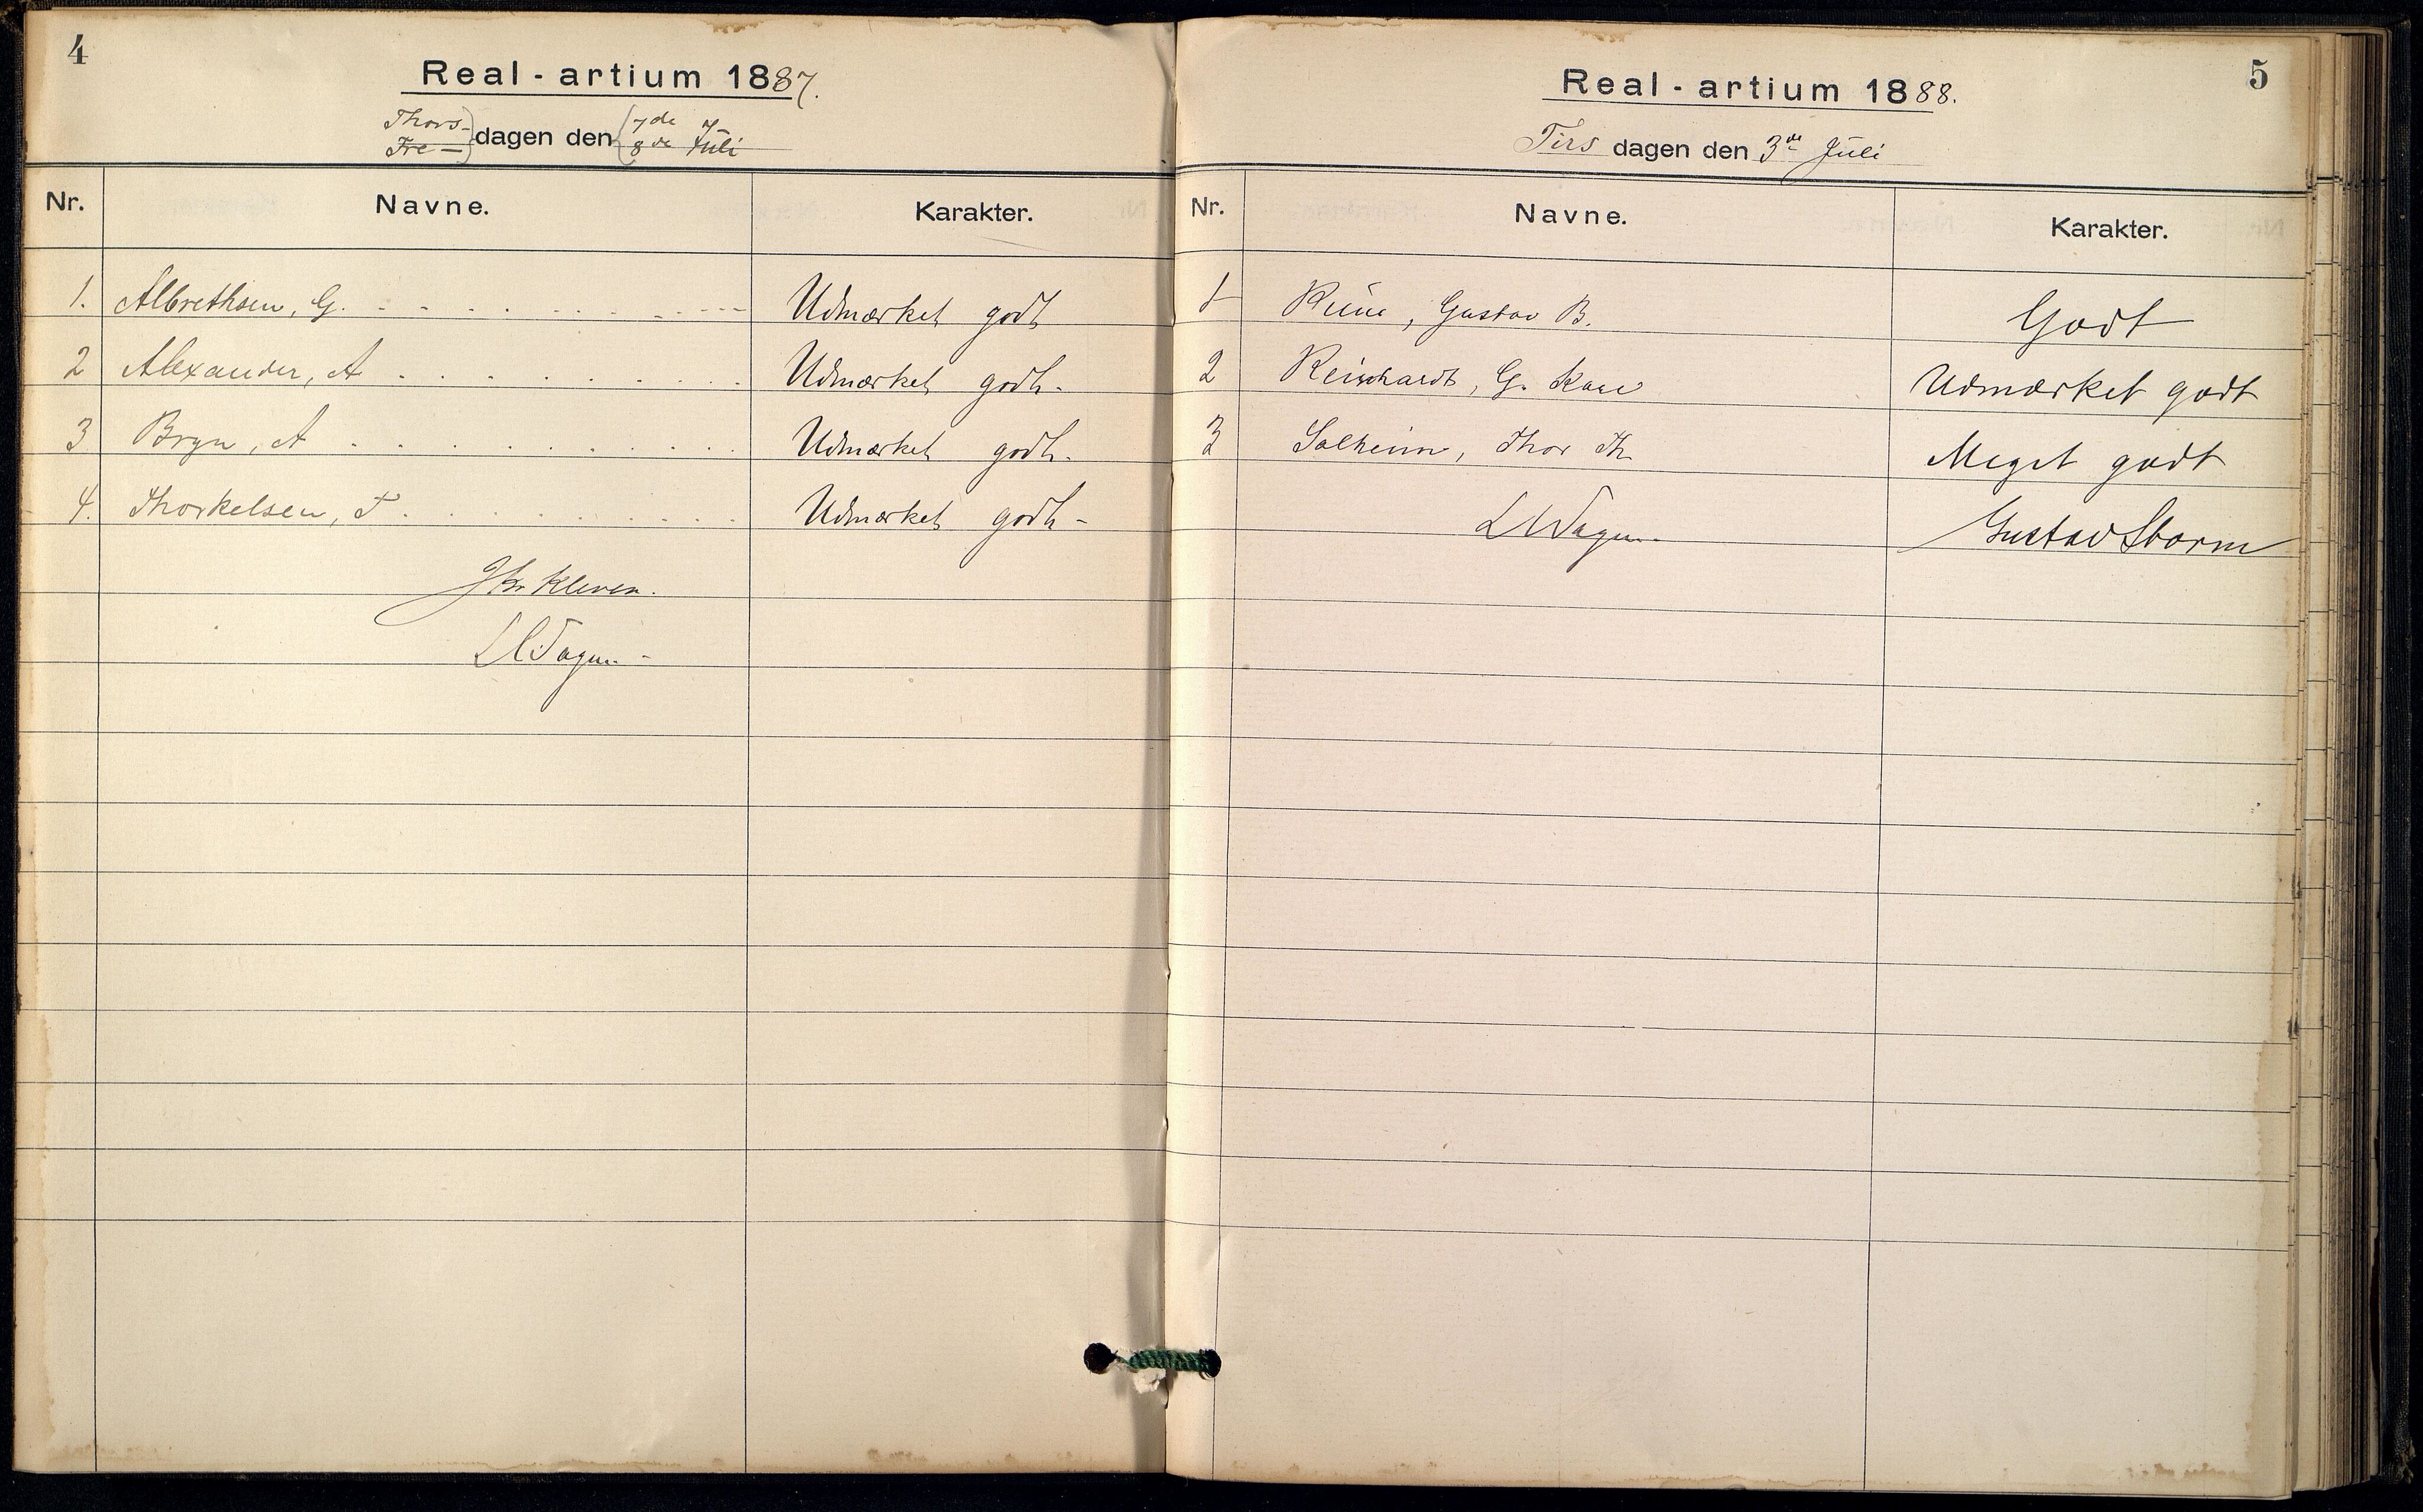 4
Real-artium 1887.
Thors-
Fre— dagen den 7de 8de Juli
Nr. Navne. Karakter.
1. Albrethsen, G. Udmærket godt
2 Alexander, A Udmærket godt.
3 Bryn, A Udmærket godt.
4. Thorkelsen, T. Udmærket godt-
Kleven.
5
Real-artium 1888.
Tirs dagen den 3de Juli
Nr. Navne. Karakter.
1 Gustav B. Godt
2 Reinhardt, G. Udmærket godt
3 Solheim, Thor Th. Meget godt
Gustav Storm